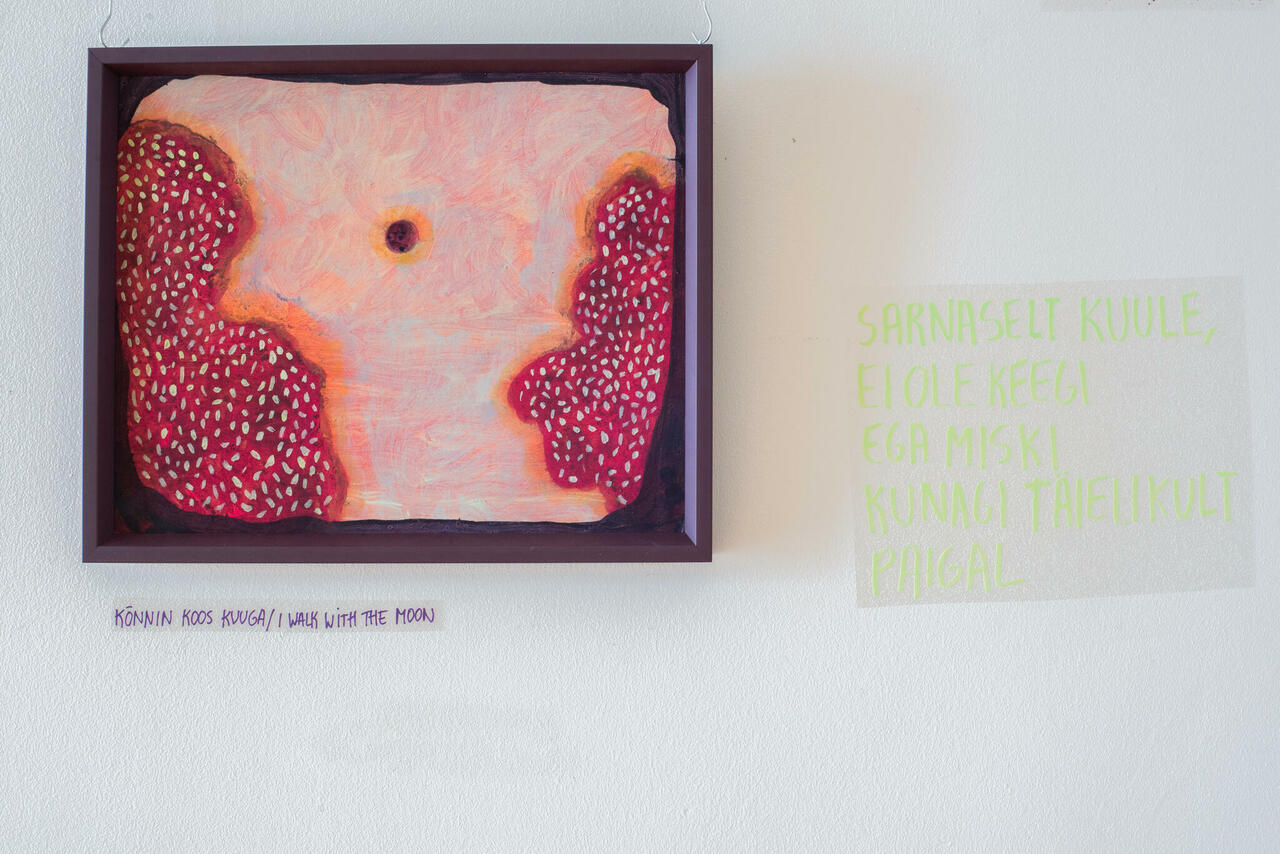 KÕNNIN KOOS KUUGA/I WALK WITH THE MOON
SARNASELT KUULE,
EI OLE KEEGI
EGA MISKI
KUNAGI TÄIELIKULT
PAIGAL